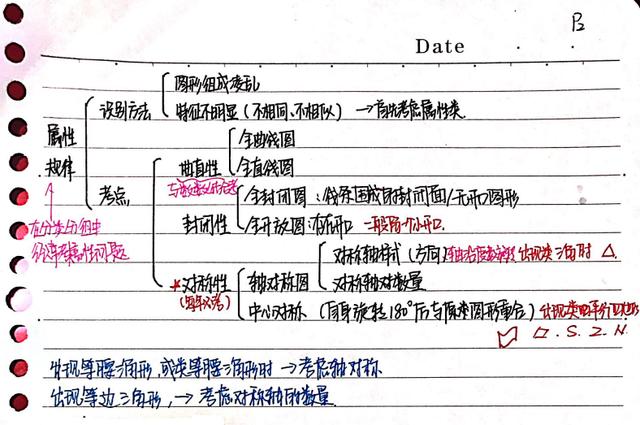 P2
Date
图形组成凌乱
识别方法
特征不明显（不相同、不相似）→首先考虑属性类
属性
规律
全曲线图
曲直性
全直线图
考点
全封闭图：线条围成的封闭面/无开口图形
封闭性
全开放图：有开口 一般留一个小开口.
在分类分组中
经常考属性问题
对称轴样式（方向） 出现类三角时 △.
*对称性
轴对称图
(每年必考)
对称轴数量
中心对称（自身旋转180°后与原来图形重合）出现类平行四边形
▱. S. Z. N.
出现等腰三角形，或类等腰三角形时→考虑轴对称
出现等边三角形，→考虑对称轴的数量